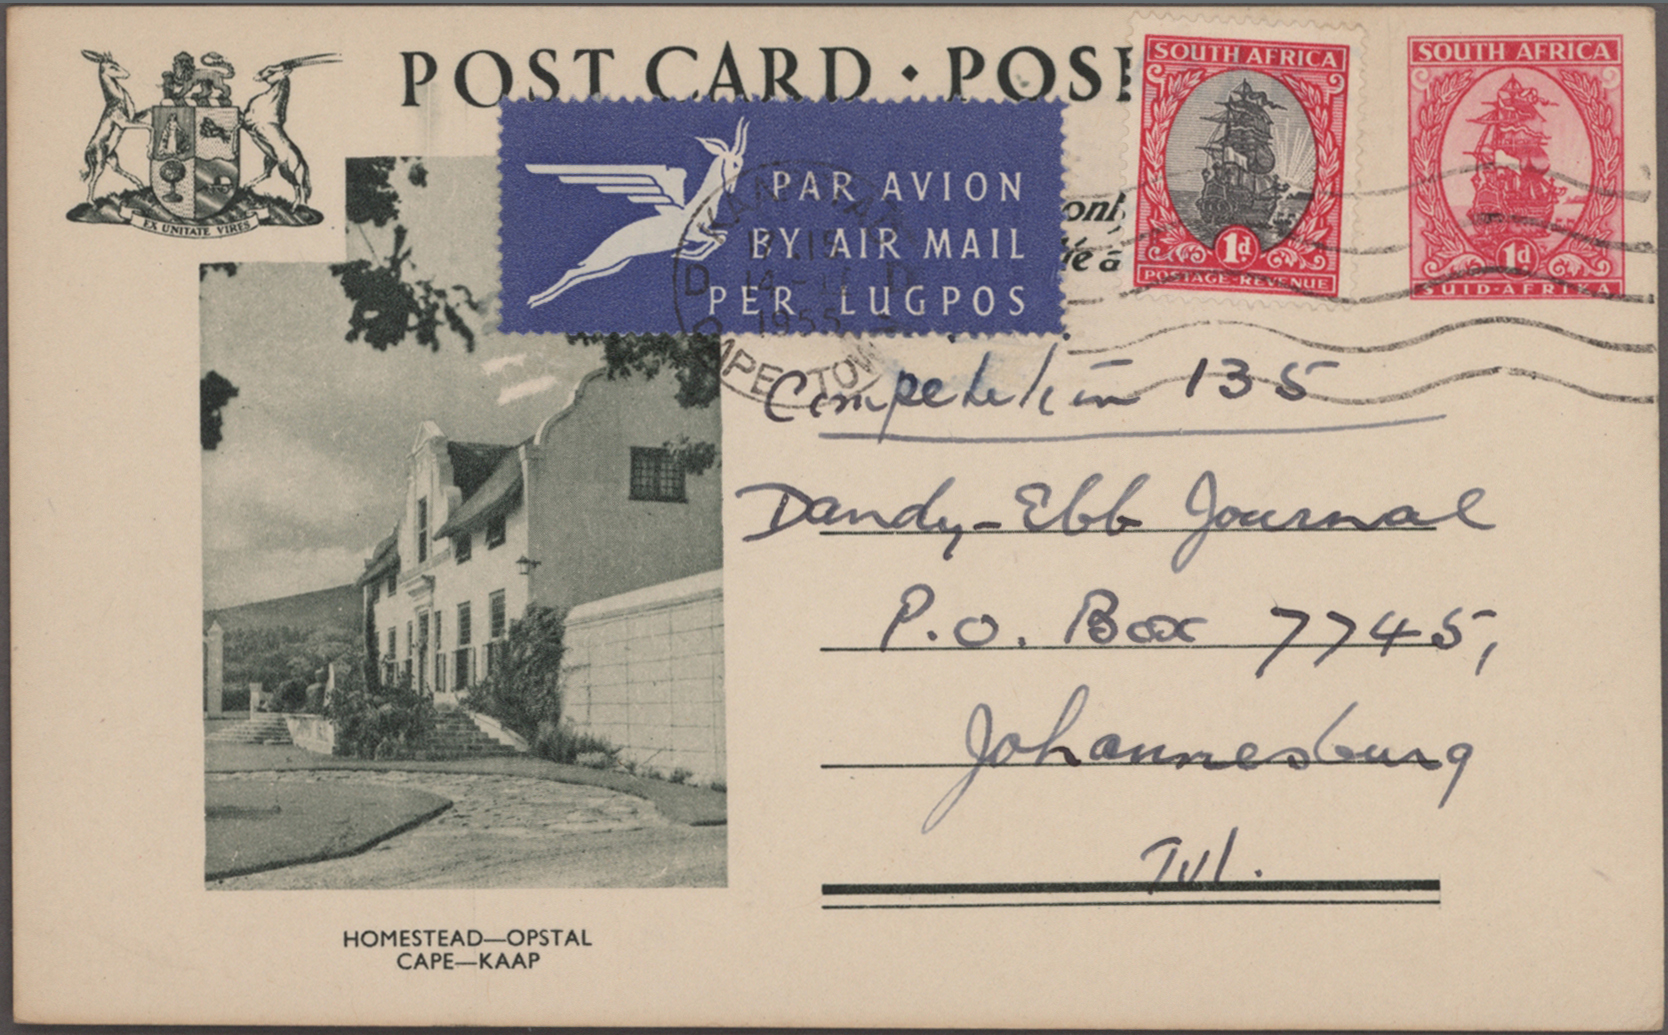 POST CARD • POS
EX UNITATE VIRES
PAR AVION
BY AIR MAIL
PER LUGPOS
SOUTH AFRICA
1d
POSTAGE-REVENUE
SOUTH AFRICA
1d
SUID-AFRIKA
KAAPSTAD
1955
CAPE TOWN
Competition 135
Dandy-Ebb Journal
P.O. Box 7745,
Johannesburg
Tvl.
HOMESTEAD—OPSTAL
CAPE—KAAP